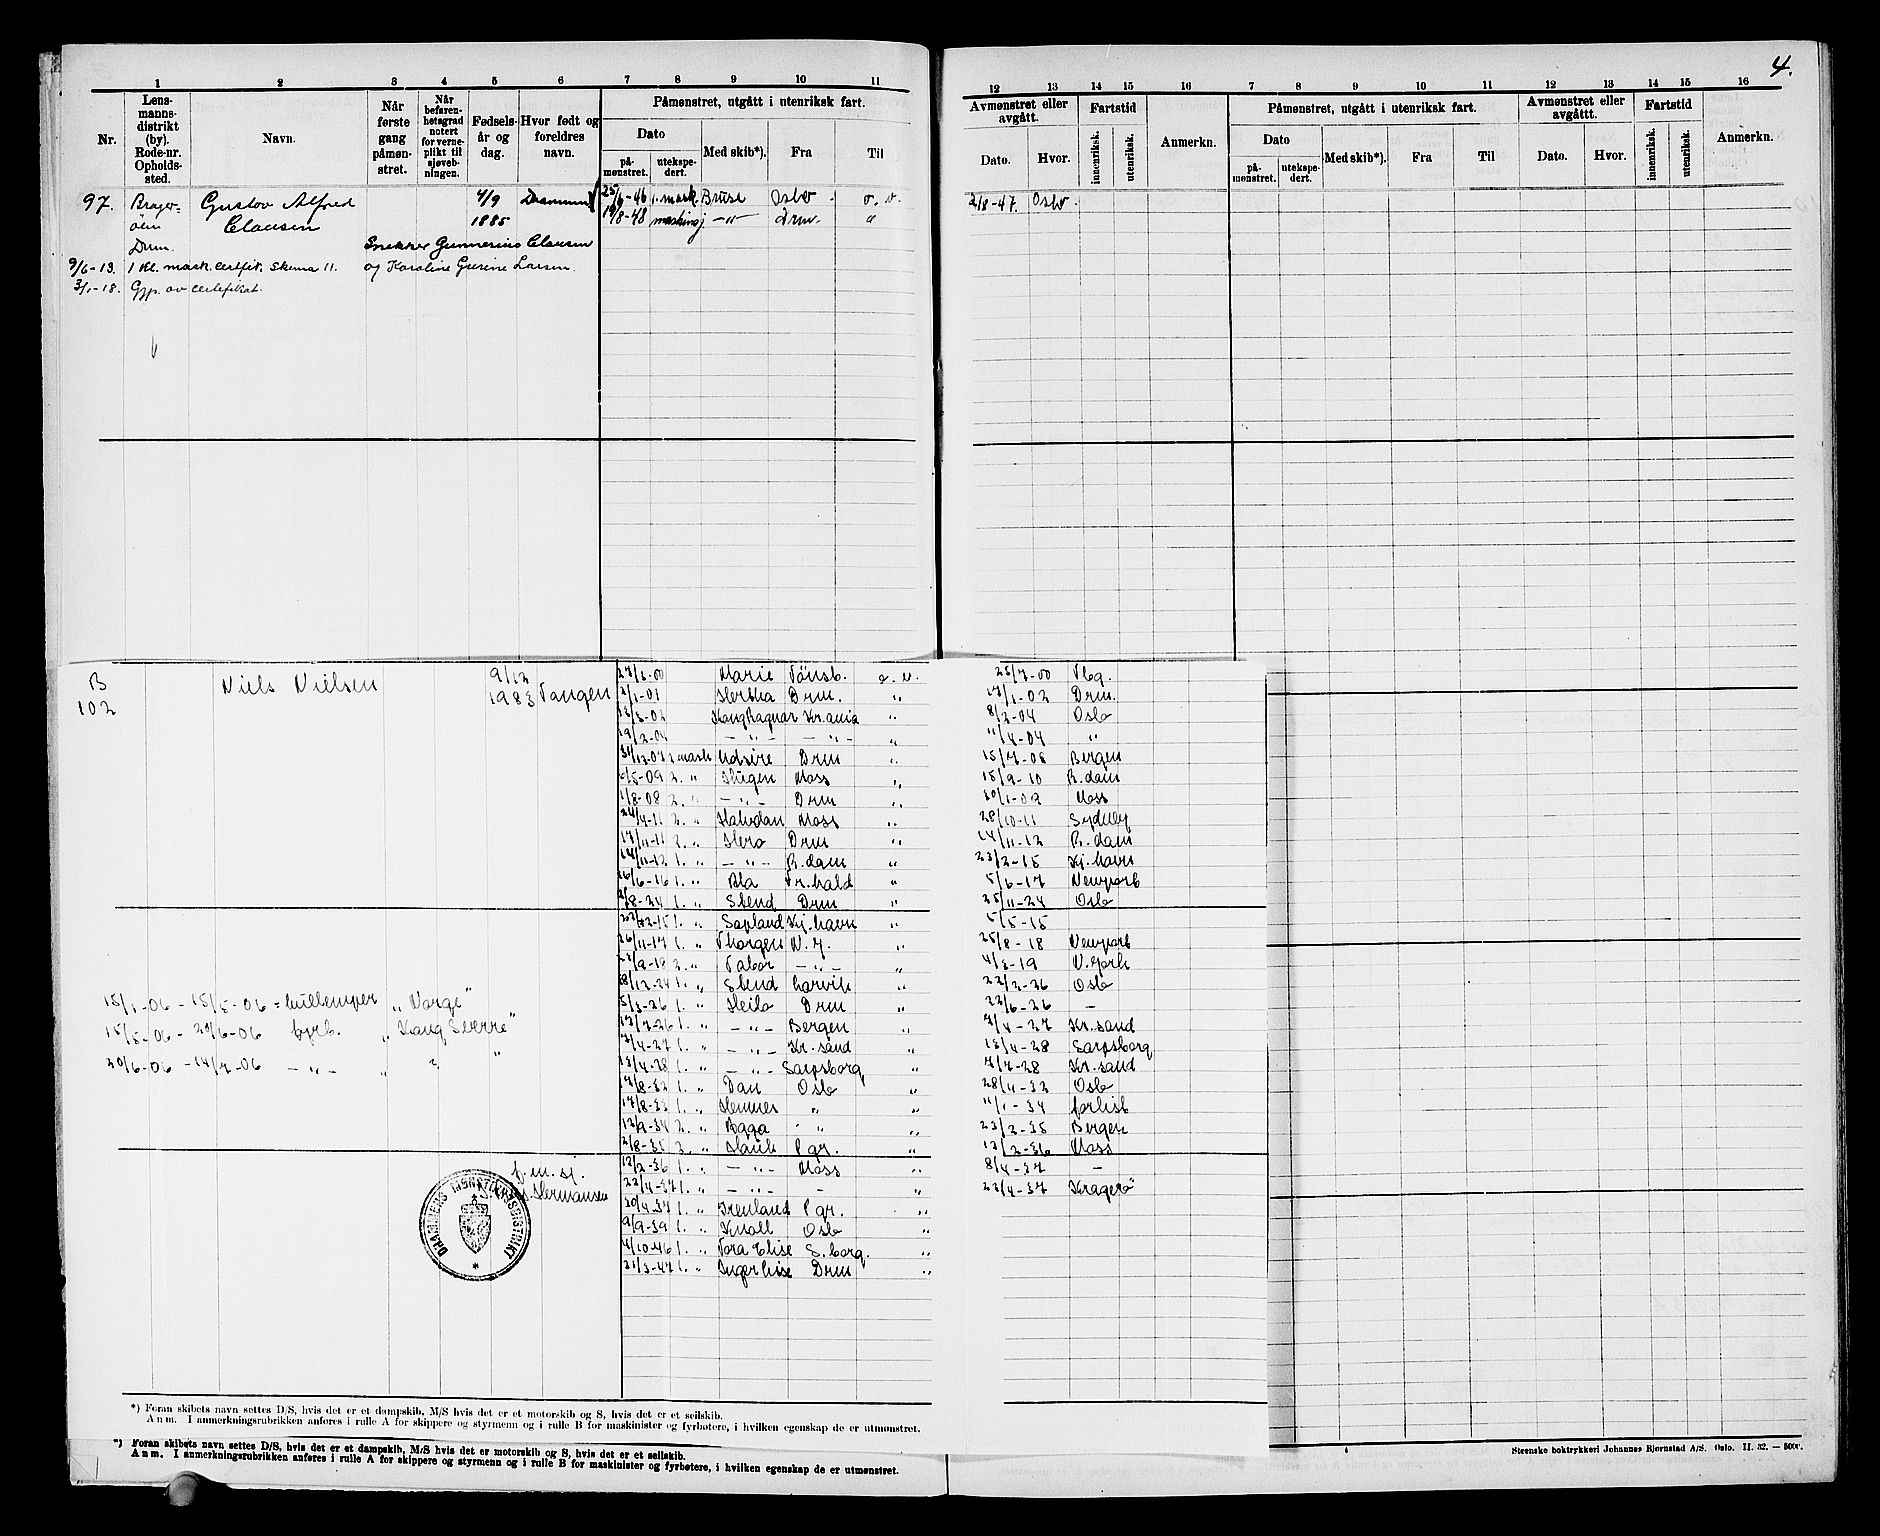 4.
1 2 3 4 5 6 7 8 9 10 11
Nr.
Lens-
manns-
distrikt
(by).
Rode-nr.
Opholds-
sted.
Navn.
Når
første
gang
påmøn-
stret.
Når
befaren-
hetsgrad
notert
for verne-
plikt til
sjøveb-
ningen.
Fødsels-
år og
dag.
Hvor født og
foreldres
navn.
Påmønstret, utgått i utenriksk fart.
Dato
på-
mønstret.
utekspe-
dert.
Med skib*).
Fra
Til
12 13 14 15 16 7 8 9 10 11 12 13 14 15 16
Avmønstret eller
avgått.
Dato.
Hvor.
Fartstid
innenriksk.
utenriksk.
Anmerkn.
Påmønstret, utgått i utenriksk fart.
Dato
på-
mønstret.
utekspe-
dert.
Med skib*).
Fra
Til
Avmønstret eller
avgåttt.
Dato.
Hvor.
Fartstid
innenriksk.
utenriksk.
Anmerkn.
97. Brager- Gustav Alfred 4/9 Drammen 25/6-46 1. mask. Bruse Oslo o. v. 2/8-47. Oslo
öen Clausen 1885 19/8-48 maskinsj. -"- Drm. "
Drm. Snekker Gunnerius Clausen
9/6-13. 1 kl. mask. certfik. Skema 11. og Karoline Gurine Larsen.
3/1-18. Gjp. av certifikat.
B
102
Niels Nielsen
9/12
1983 Tangen
27/3-00 Marie Tönsb. o. v. 25/7-00 Tbg.
2/1-01 Hertha Drm. " 17/1-02 Drm.
13/3-02 Konghagnar Kr.ania " 8/2-04 Oslo
19/2-04 -"- -"- " "/4-04 "
31/12-07 2 mask Udsire Drm " 15/7-08 Bergen
/5-09 2. " Hugen Moss " 15/9-10 R.dam
1/8-08 2. " -"- Drm " 30/1-09 Moss
24/4-11 2. " Halvdan Moss " 28/10-11 Sydney
17/11-11 2. " Hero Drm " 14/11-12 R.dam
14/11-12 1. " -"- R.dam " 23/2-15 Kj.havn
16/6-16 1. " Bla Fr.hald " 5/6-17 Newport
2/8-24 1. " Stend Drm " 25/11-24 Oslo
1. " Sapland Kj.havn " 5/5-15
26/11-17 1. " Thorgen N.Y. " 25/8-18 Newport
23/9-18 2. " Tabor -"- " 4/3-19 N.York
18/12-24 1. " Stend Larvik " 22/2-26 Oslo
5/3-26 1. " Heila Drm " 22/6-26 -
17/7-26 1. " -"- Bergen " 7/4-27 Kr.sand
7/4-27 1. " -"- Kr.sand " 13/4-28 Sarpsborg
13/4-28 1. " -"- Sarpsborg " 7/7-28 Kr.sand
17/8-32 1. " Dan Oslo " 28/4-32 Oslo
17/8-33 1. " Hennes " " "/1-34
12/9-34 2. " Agga " " 23/2-35 Bergen
2/8-35 2. " Hauk Pgr. " 12/2-36 Moss
12/2-36 1. " -"- Moss " 8/4-37 -
22/4-37 1. " -"- - " 23/4-37 Kragerö
30/4-37 1. " Grenland Pgr. "
9/9-39 1. " Knoll Oslo "
4/10-46 1. " Tora Elise S.borg. "
21/3-47 1. " Inger lise Drm "
15/1-06 - 15/5-06 = kullemper "Varge"
15/5-06 - 20/6-06 fyrb. "Kong Sverre"
20/6-06 - 14/7-06 -"- " " "
f.m.sj.
Hermansen
DRAMMENS MØNSTRINGSDISTRIKT
*
*) Foran skibets navn settes D/S, hvis det er et dampskib, M/S hvis det er et motorskib og S, hvis det er et seilskib.
Anm. I anmerkningsrubrikken anføres i rulle A for skippere og styrmenn og i rulle B for maskinister og fyrbøtere, i hvilken egenskap de er utmønstret.
*) Foran skibets navn settes D/S, hvis det er et dampskib, M/S hvis det er motorskib og S, hvis det er et seilskib.
Anm. I anmerkningsrubrikken anføres i rulle A for skippere og styrmenn og i rulle B for maskinister og fyrbøtere, i hvilken egenskap de er utmønstret.
4
Steenske boktrykkeri Johannes Bjørnstad A/S. Oslo. II. 32. — 5000.